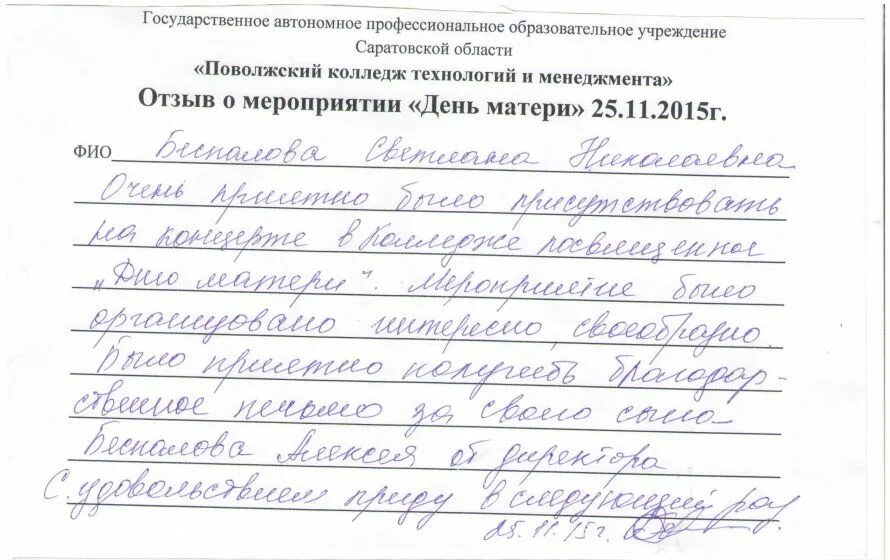 Государственное автономное профессиональное образовательное учреждение
Саратовской области
«Поволжский колледж технологий и менеджмента»
Отзыв о мероприятии «День матери» 25.11.2015г.
ФИО Беспалова Светлана Николаевна
Очень приятно было присутствовать
на концерте в колледже посвященное
„Дню матери". Мероприятие было
организовано интересно, своеобразно.
Было приятно получить благодар-
ственное письмо за своего сына
Беспалова Алексея от директора
С удовольствием приду в следующий раз.
25.11.15г.